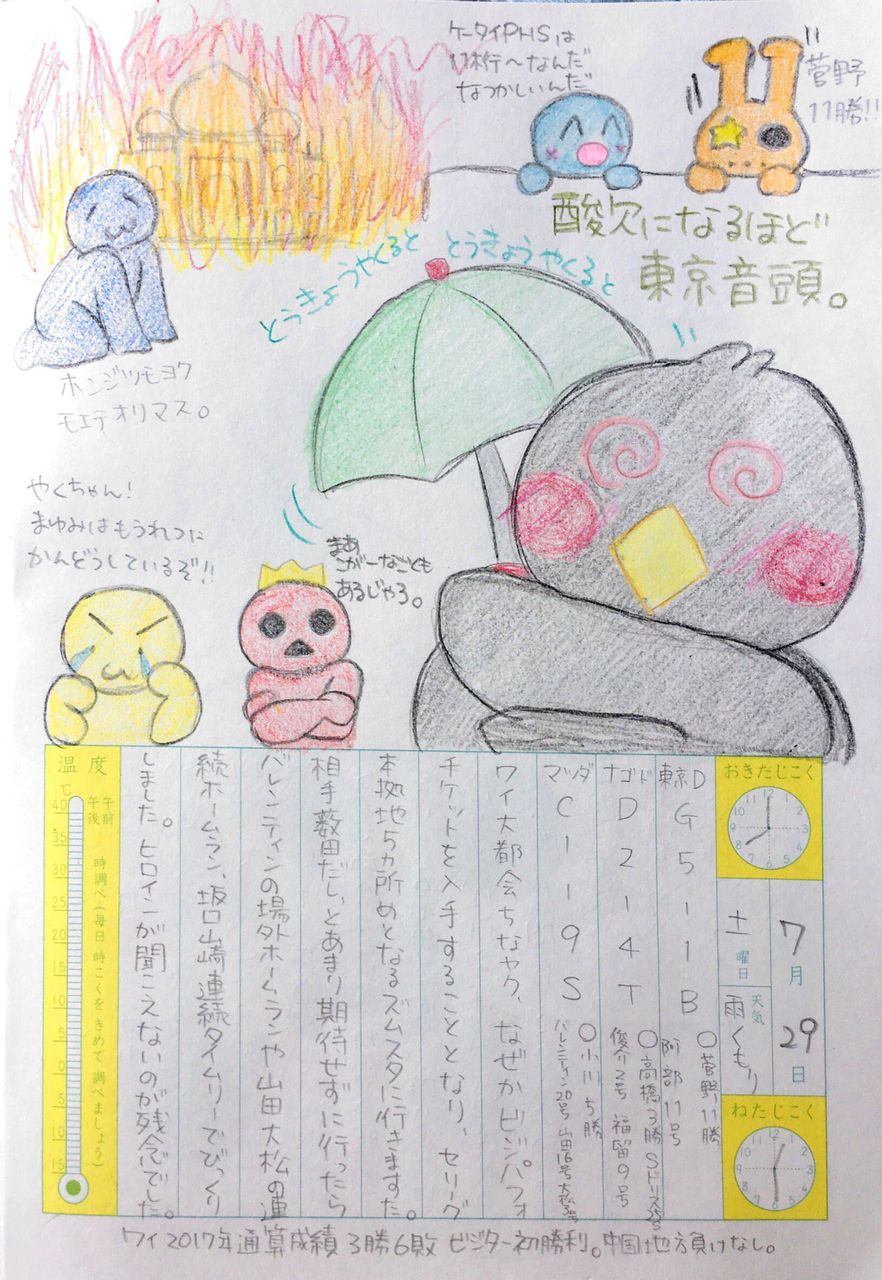 ケータイPHSは
11桁〜なんだ
なつかしいんだ
菅野
11勝!!
酸欠になるほど
東京音頭。
とうきょうやくると とうきょうやくると
ホンジツモヨク
モエテオリマス。
やくちゃん!
まゆみはもうれつに
かんどうしているぞ!!
まあ
こがーなことも
あるじゃろ。
おきたじこく
7月29日
土曜日
天気 雨くもり
ねたじこく
東京D G5-1B ○菅野11勝 阿部11号
ナゴド D2-4T ○高橋3勝 Sドリス 俊介2号 福留9号
マツダ C1-9S ○小川5勝 バレンティン20号 山田16号 大松3号
ワイ大都会ちなヤク、なぜかビジパフォ
チケットを入手することとなり、セリーグ
本拠地5ヵ所めとなるズムスタに行きますた。
相手薮田だし、とあまり期待せずに行ったら
バレンティンの場外ホームランや山田大松の連
続ホームラン、坂口山崎連続タイムリーでびっくり
しました。ヒロインが聞こえないのが残念でした。
温度
℃
午前
午後
時調べ(毎日 時こくを きめて 調べましょう)
40
35
30
25
20
15
10
5
0
5
10
15
ワイ2017年通算成績 3勝6敗 ビジター初勝利。中国地方負けなし。